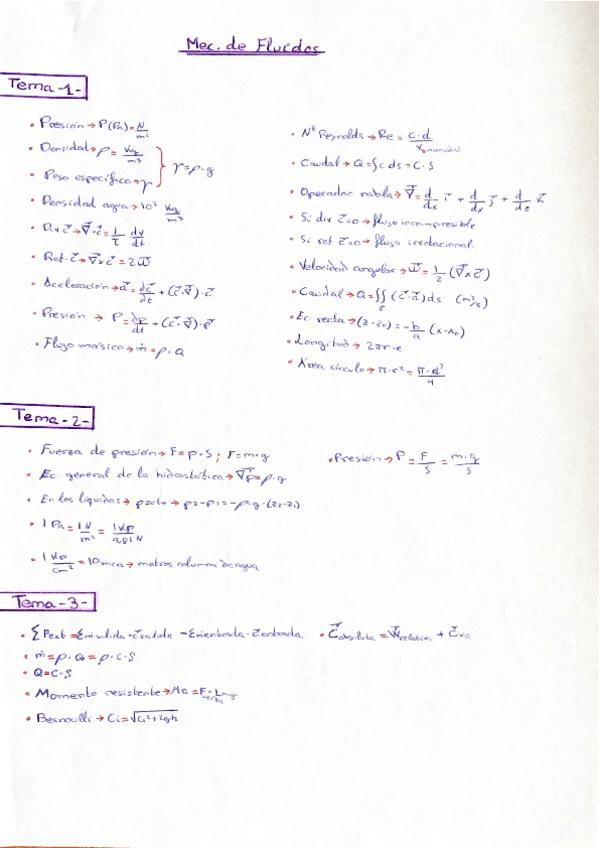 Mec. de Fluidos
Tema -1-
• Presión → P(Pa) = N/m²
• Densidad → ρ = Kg/m³
• Peso específico → γ
γ = ρ · g
• Densidad agua → 10³ Kg/m³
• Div c⃗ → ∇⃗ · c⃗ = 1/τ dτ/dt
• Rot. c⃗ → ∇⃗ x c⃗ = 2 w⃗
• Aceleración → a⃗ = ∂c⃗/∂t + (c⃗ · ∇⃗) · c⃗
• Presión → P = ∂p/∂t + (c⃗ · ∇⃗) · p⃗
• Flujo másico → ṁ = ρ · Q
• Nº Reynolds → Re = c · d /
• Caudal → Q = ∫ c ds = C · S
• Operador nabla → ∇⃗ = d/dx i⃗ + d/dy j⃗ + d/dz k⃗
• Si div c⃗ = 0 → flujo incompresible
• Si rot c⃗ = 0 → flujo irrotacional
• Velocidad angular → w⃗ = 1/2 (∇⃗ x c⃗)
• Caudal → Q = ∫∫ (c⃗ · n⃗) ds (m³/s)
• Ec. recta → (z - z₀) = -b/a (x - x₀)
• Longitud → 2πr · e
• Área círculo → π · r² = π · d²/4
Tema - 2 -
• Fuerza de presión → F = p · S ; F = m · g
• Presión → P = F/S = m · g/S
• Ec. general de la hidrostática → ∇⃗p = ρ · g
• En los líquidos → ρ = cte → p₂ - p₁ = -ρ · g · (z₂ - z₁)
• 1 Pa = 1 N/m² = 1 Kp/9,81 N
• 1 Kp/cm² = 10 mca → metros columna de agua
Tema - 3 -
• Σ Fext = Σ ṁ salida · c⃗ salida - Σ ṁ entrada · c⃗ entrada
• C⃗ absoluta = W⃗ relativa + c⃗
• ṁ = ρ · Q = ρ · C · S
• Q = C · S
• Momento resistente →
• Bernoulli → Ci = √Ci² + 2gh